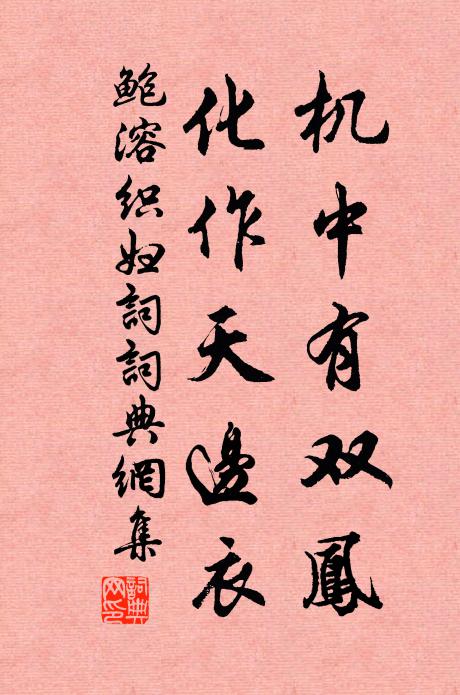 机中有双鳳
化作天邊衣
鲍溶织妇詞詞典網集
詞典網印